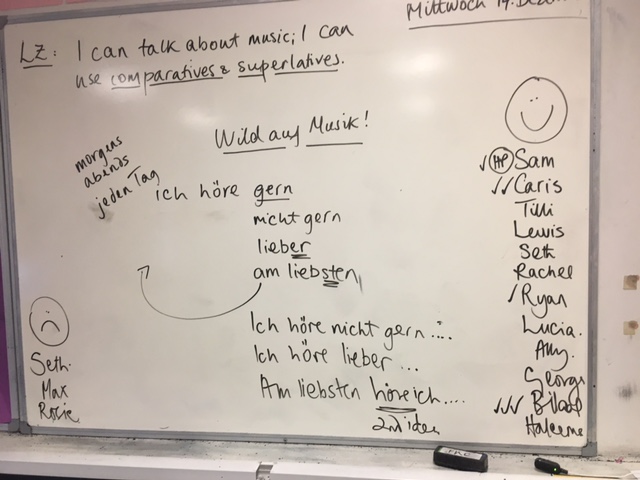 Mittwoch 19. Deze
LZ: I can talk about music; I can
use comparatives & superlatives.
Wild auf Musik!
morgens
abends
jeden Tag
ich höre gern
nicht gern
lieber
am liebsten
Ich höre nicht gern ....
Ich höre lieber ...
Am liebsten höre ich ....
2nd idea
HP Sam
Caris
Tilli
Lewis
Seth
Rachel
Ryan
Lucia.
Amy.
George
Haleema
Seth.
Max
Rosie